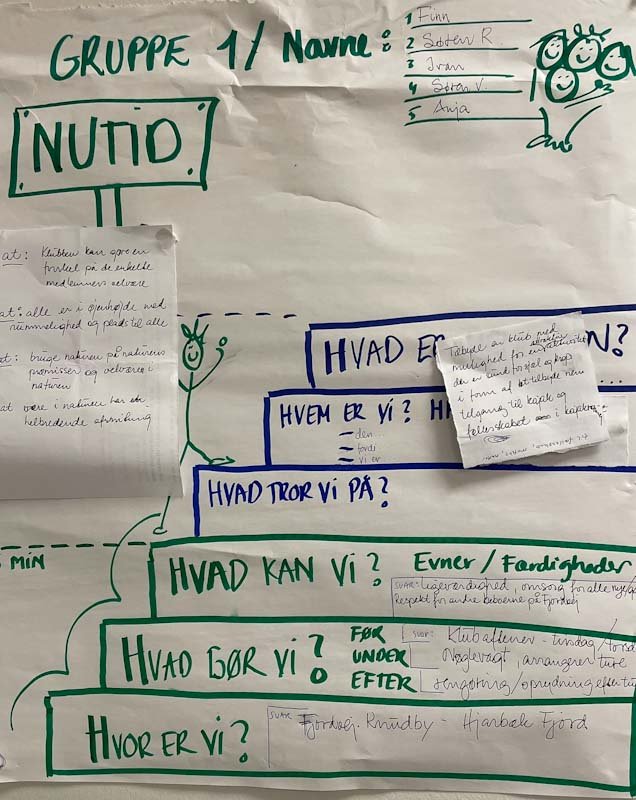 GRUPPE 1/ Navne:
1 Finn
2 Søren R.
3 Ivan
4 Søren V.
5 Anja
NUTID
at: Klubben kan gøre en
forskel på de enkelte
medlemmers velvære
at: alle er i øjenhøjde med
rummelighed og plads til alle
at: bruge naturen på naturens
præmisser og velvære i
naturen
at være i naturen har en
helbredende afvirkning
HVAD ER N?
Tilbyde en klub med
mulighed for en attraktiv aktivitet
der er sund for sjæl og krop
i form af at tilbyde nem
adgang til kajak og
fællesskabet i kajak
HVEM ER VI?
den...
fordi
vi er
HVAD TROR VI PÅ?
MIN
HVAD KAN VI? Evner / Færdigheder
SVAR: Ligeværdighed, omsorg for alle nye
Respekt for andre beboerne på Fjordvej
HVAD GØR VI?
FØR SVAR: Klubaftener - tirsdag/torsd
UNDER Nøglevagt arrangerer ture
EFTER rengøring/oprydning efter tu
HVOR ER VI?
SVAR Fjordvej. Knudby - Hjarbæk Fjord